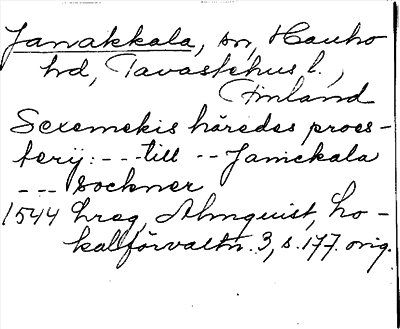 Janakkala, sn, Hauho
hd, Tavastehus l.,
Finland
Sexemekis häredes proes-
terij: --- till -- Janickala
--- sockner
1544 hreg, Almquist, Lo-
kalförvaltn. 3, s. 177. orig.